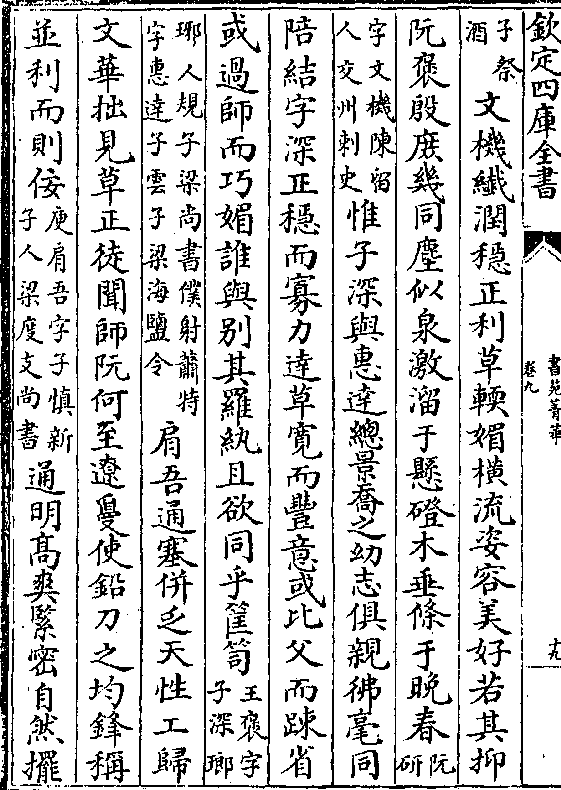 欽定四庫全書
書苑菁華
卷九
十九
子祭
酒
文機纖潤穩正利草輭媚橫流姿容美好若其抑
阮褒殷庶幾同塵似泉激溜于懸磴木垂條于晚春
阮
研
字文機陳留
人交州刺史
惟子深與惠達總景喬之幼志俱親彿毫同
陪結字深正穩而寡力達草寬而豐意或比父而踈省
或過師而巧媚誰與別其羅紈且欲同乎筐笥
王褒字
子深瑯
琊人規子梁尚書僕射蕭特
字惠達子雲子梁海鹽令
肩吾通塞併乏天性工歸
文華拙見草正徒聞師阮何至遼敻使鉛刀之均鋒稱
並利而則佞
庾肩吾字子慎新
子人梁度支尚書
通明高爽緊密自然擺